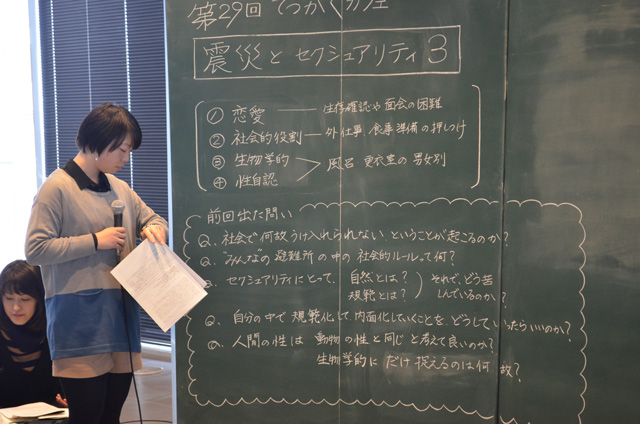 第29回 てつがくカフェ
震災とセクシュアリティ3
① 恋愛 ―― 生存確認や面会の困難
② 社会的役割 ― 外仕事、食事準備の押しつけ
③ 生物学的
④ 性自認
> 風呂、更衣室の男女別
前回出た問い
Q、社会で何故うけ入れられないということが起こるのか?
Q、"みんなの避難所"の中の社会的ルールって何?
Q、セクシュアリティにとって、自然とは?
規範とは?
それで、どう苦
しんでいるのか?
Q、自分の中で規範化して、内面化していくことを、どうしていったらいいのか?
Q、人間の性は動物の性と同じと考えて良いのか?
生物学的にだけ捉えるのは何故?